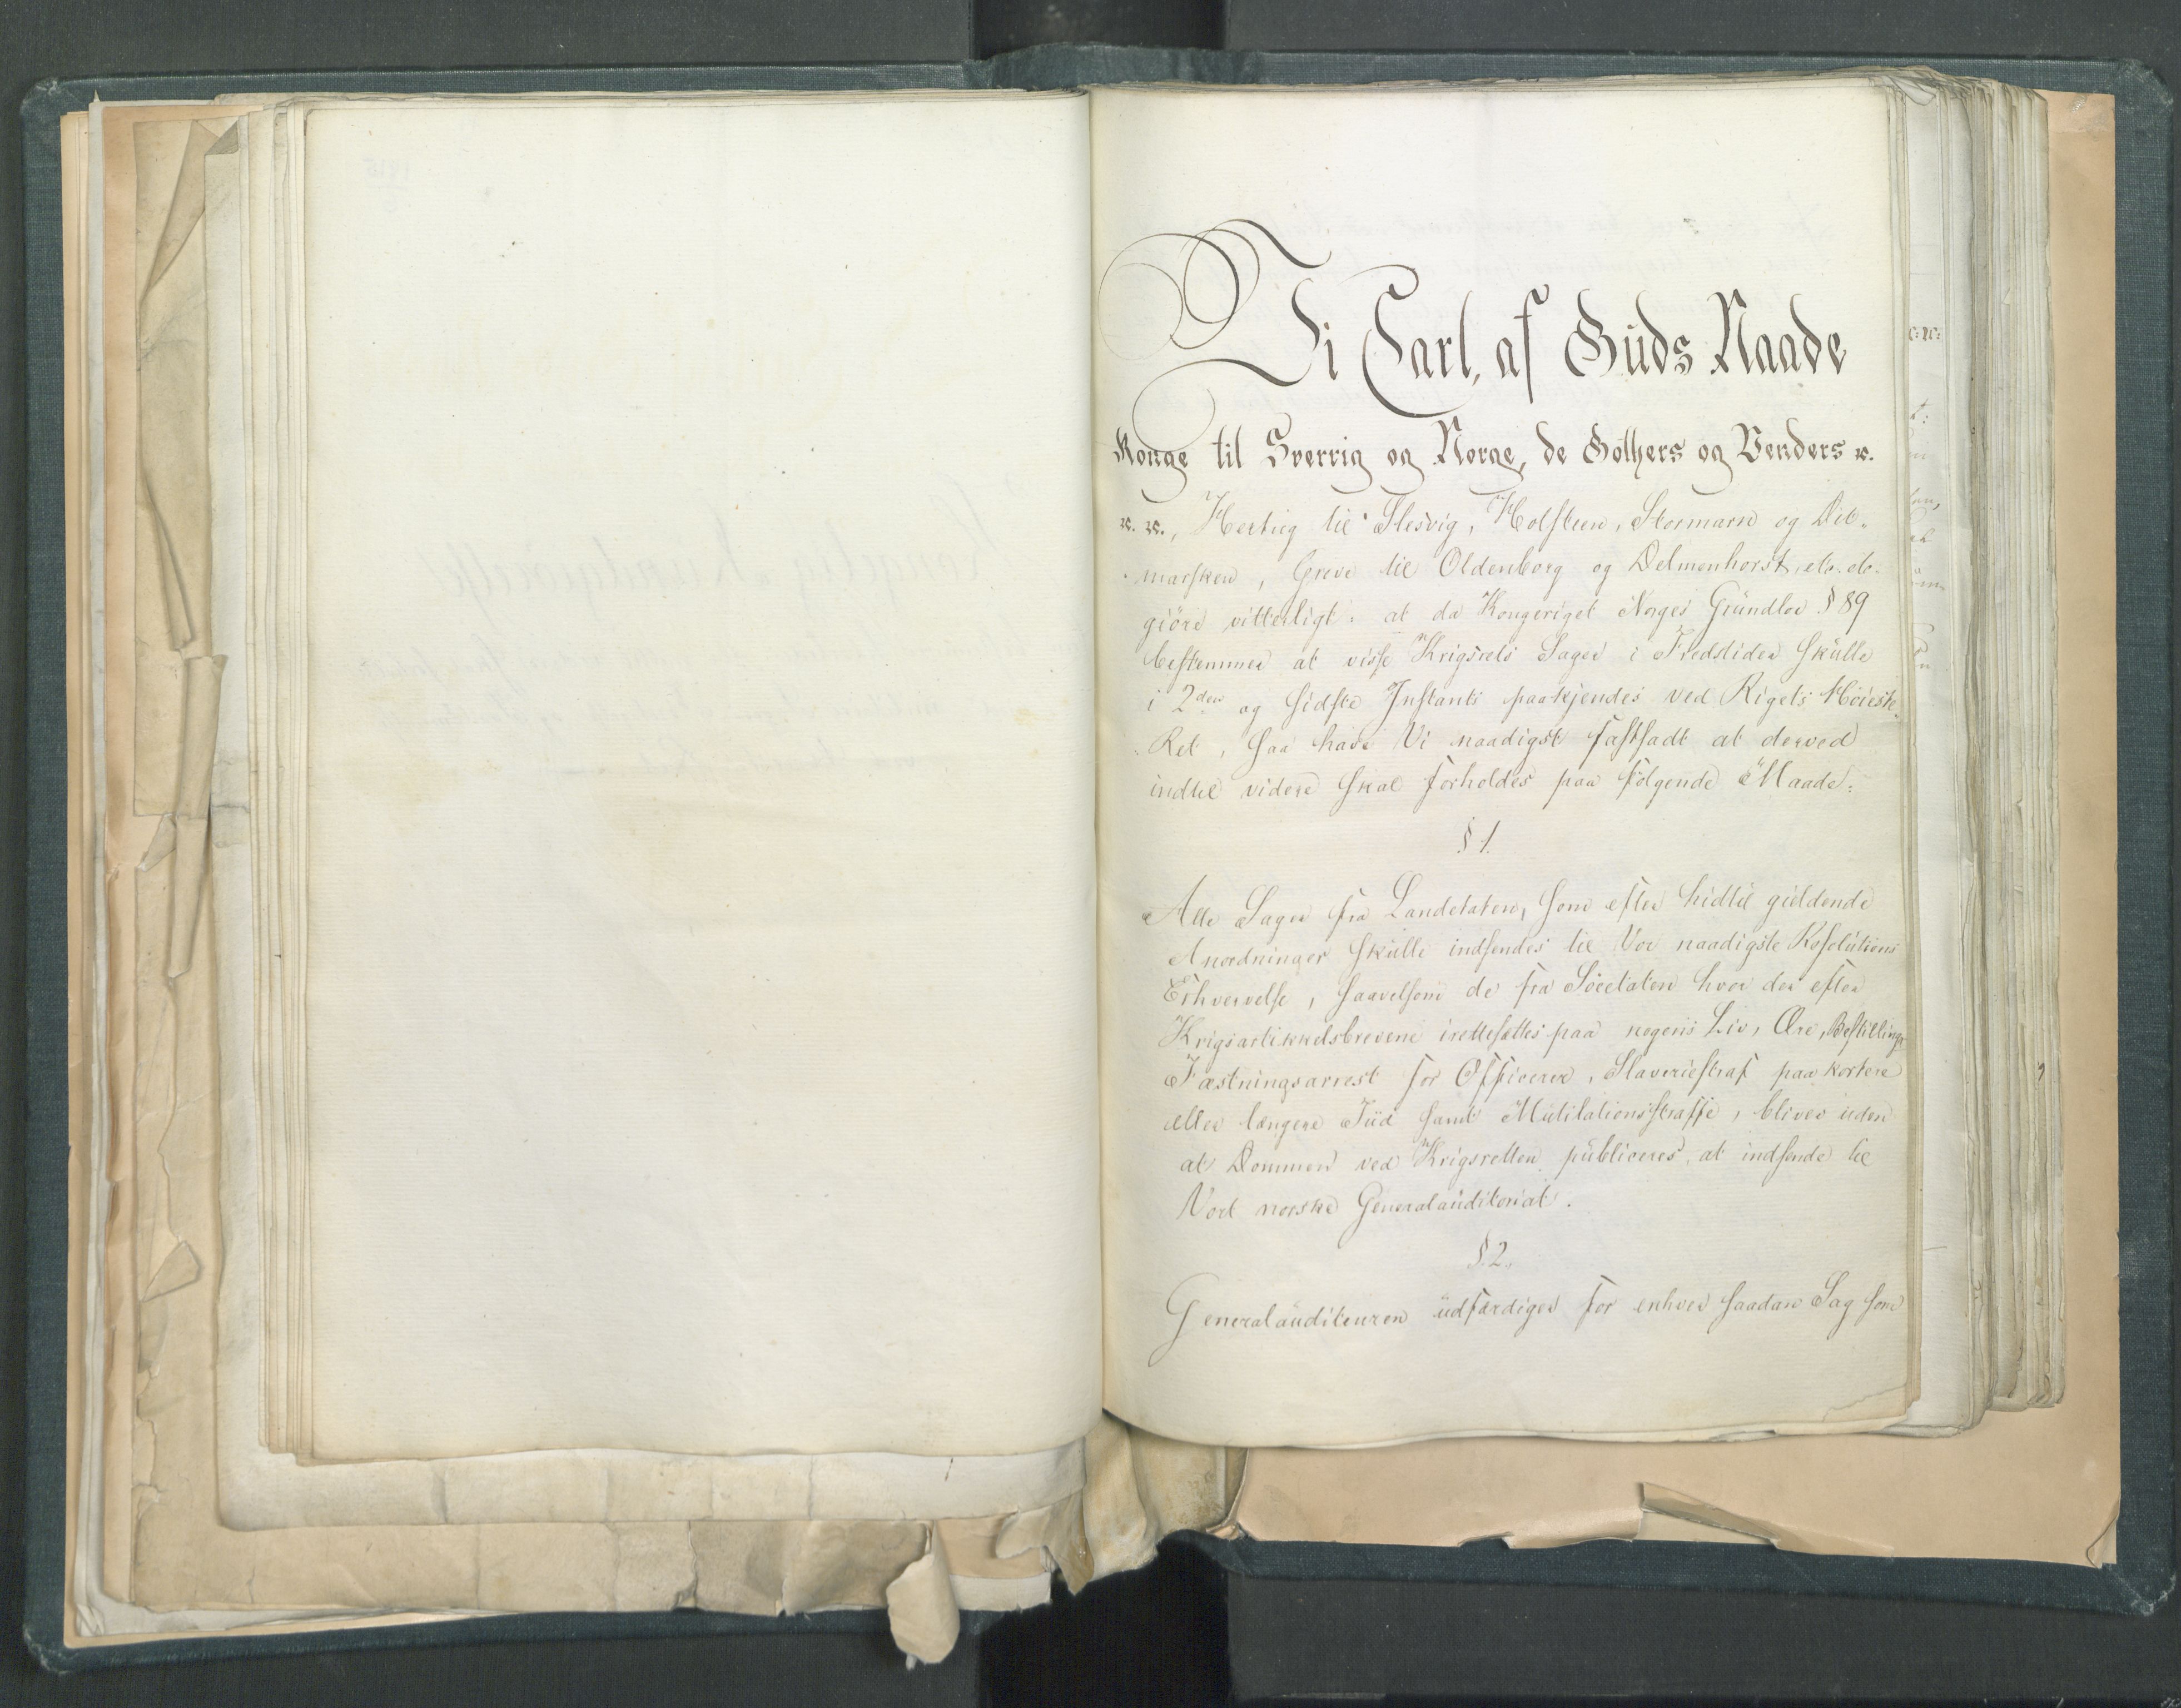 Vi Carl, af Guds Naade
Konge til Sverrig og Norge, de Gothers og Venders &c.
&c. &c., Hertug til Slesvig, Holsteen, Stormarn og Dit-
marsken, Greve til Oldenborg og Delmenhorst, etc. etc.
giöre vitterligt: at da Kongeriget Norges Grundlov § 89
bestemmer at visse Krigsrets Sager i Fredstider skulle
i 2den og sidste Instants paakjendes ved Rigets Höieste
Ret, saa have Vi naadigst fastsadt at derved
indtil videre skal forholdes paa fölgende Maade:
§ 1.
Alle Sager fra Landetaten, som efter hidtil gieldende
Anordninger skulle indsendes til Vor naadigste Resolutions
Erhvervelse, saavelsom de fra Söeetaten hvor der efter
Krigsartikkelsbrevene irettesættes paa nogens Liv, Ære, Bestilling,
Fæstningsarrest for Officerer, Slaveriestraf paa kortere
eller længere Tiid samt Mutilationsstraffe, bliver uden
at Dommen ved Krigsretten publiceres, at indsende til
Vort norske Generalauditoriat.
§. 2.
Generalauditeuren udfærdiger for enhver saadan Sag som